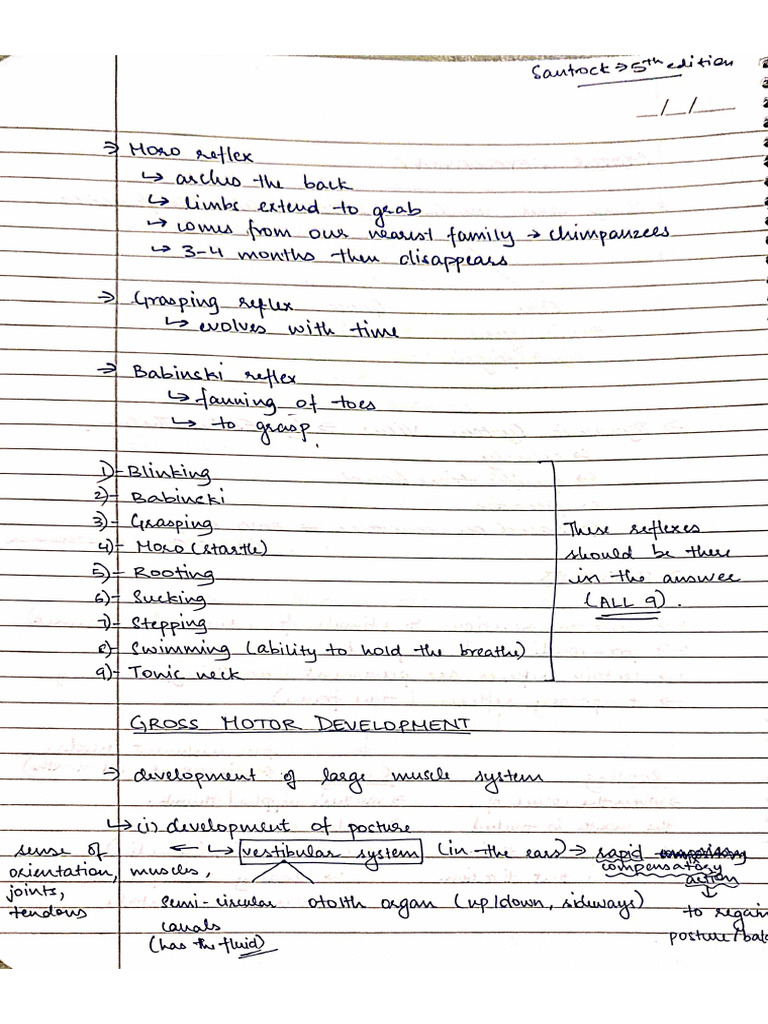 Santrock → 5th edition
_/_/__
⇒ Moro reflex
↳ arches the back
↳ limbs extend to grab
↳ comes from our nearest family → chimpanzees
↳ 3-4 months then disappears
⇒ Grasping reflex
↳ evolves with time
⇒ Babinski reflex
↳ fanning of toes
↳ to grasp.
1)- Blinking
2)- Babincki
3)- Grasping
4)- Moro (startle)
5)- Rooting
6)- Sucking
7)- Stepping
8)- Swimming (ability to hold the breathe)
9)- Tonic neck
These reflexes
should be there
in the answer
(ALL 9).
GROSS MOTOR DEVELOPMENT
⇒ development of large muscle system
↳ (i) development of posture
← ↳ vestibular system (in the ears) → rapid
compensatory
action
↓
to regain
posture/bala
sense of
orientation, muscles,
joints,
tendons
semi-circular otolth organ (up/down, sideways)
canals
(has the fluid)